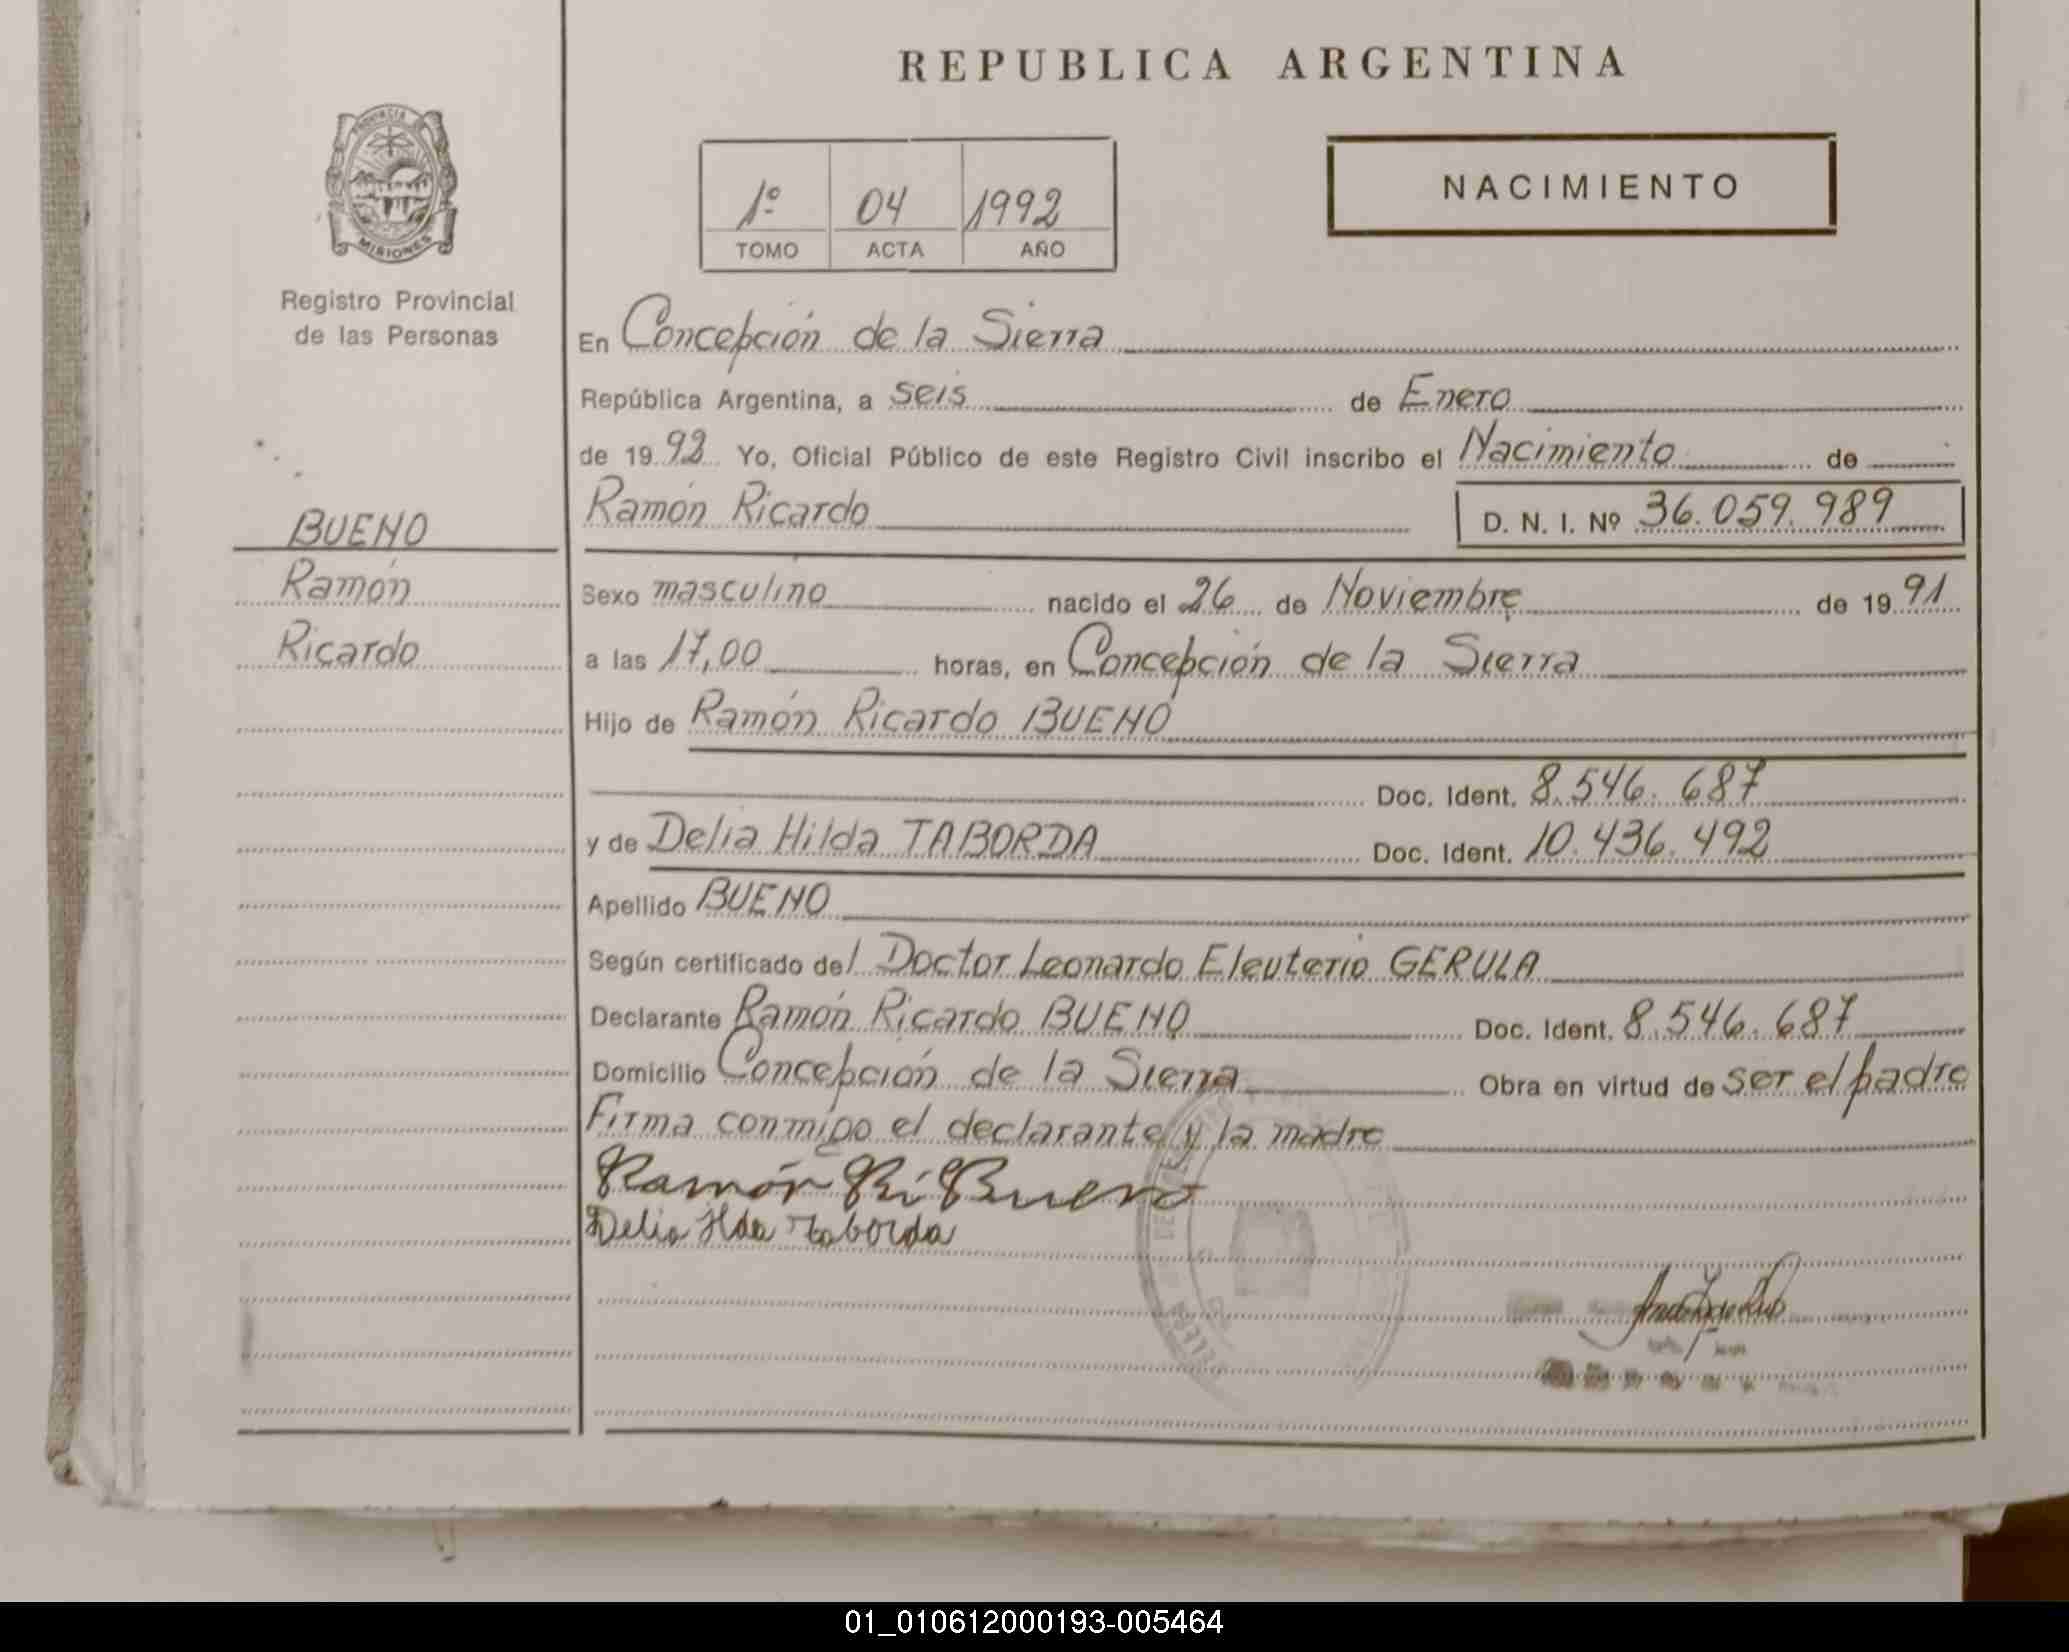 REPUBLICA ARGENTINA
PROVINCIA DE
MISIONES
Registro Provincial
de las Personas
1º 04 1992
TOMO ACTA AÑO
NACIMIENTO
BUENO
Ramón
Ricardo
En Concepción de la Sierra
República Argentina, a seis de Enero
de 1992 Yo, Oficial Público de este Registro Civil inscribo el Nacimiento de
Ramón Ricardo D. N. I. Nº 36.059.989
Sexo masculino nacido el 26 de Noviembre de 1991
a las 17,00 horas, en Concepción de la Sierra
Hijo de Ramón Ricardo BUENO
Doc. Ident. 8.546.687
y de Delia Hilda TABORDA Doc. Ident. 10.436.492
Apellido BUENO
Según certificado del Doctor Leonardo Eleuterio GERULA
Declarante Ramón Ricardo BUENO Doc. Ident. 8.546.687
Domicilio Concepción de la Sierra Obra en virtud de ser el padre
Firma conmigo el declarante y la madre
Ramón Ri Bueno
Delia Ilda Taborda
01_010612000193-005464